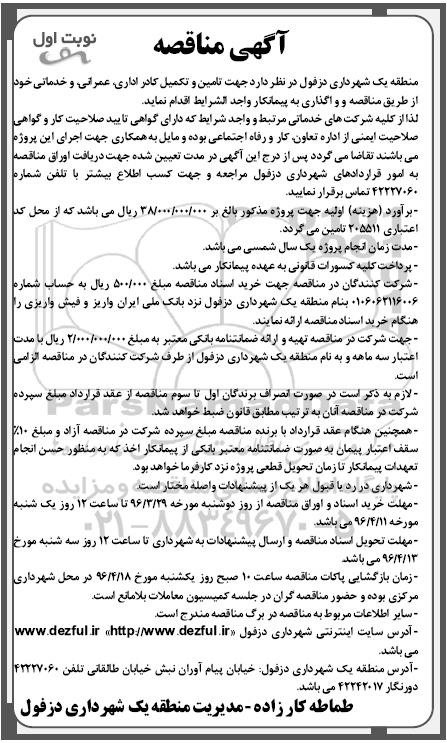 آگهی مناقصه
نوبت اول
منطقه یک شهرداری دزفول در نظر دارد جهت تامین و تکمیل کادر اداری، عمرانی، و خدماتی خود
از طریق مناقصه و و اگذاری به پیمانکار واجد الشرایط اقدام نماید.
لذا از کلیه شرکت های خدماتی مرتبط و واجد شرایط که دارای گواهی تایید صلاحیت کار و گواهی
صلاحیت ایمنی از اداره تعاون، کار و رفاه اجتماعی بوده و مایل به همکاری جهت اجرای این پروژه
می باشند تقاضا می گردد پس از درج این آگهی در مدت تعیین شده جهت دریافت اوراق مناقصه
به امور قراردادهای شهرداری دزفول مراجعه و جهت کسب اطلاع بیشتر با تلفن شماره
۴۲۲۲۷۰۶۰ تماس برقرار نمایید.
-برآورد (هزینه) اولیه جهت پروژه مذکور بالغ بر ۳۸/۰۰۰/۰۰۰/۰۰۰ ریال می باشد که از محل کد
اعتباری ۲۰۵۵۱۱ تامین می گردد.
-مدت زمان انجام پروژه یک سال شمسی می باشد.
-پرداخت کلیه کسورات قانونی به عهده پیمانکار می باشد.
-شرکت کنندگان در مناقصه جهت خرید اسناد مناقصه مبلغ ۵۰۰/۰۰۰ ریال به حساب شماره
۰۱۰۶۰۶۲۱۱۶۰۰۶ بنام منطقه یک شهرداری دزفول نزد بانک ملی ایران واریز و فیش واریزی را
هنگام خرید اسناد مناقصه ارائه نمایند.
-جهت شرکت در مناقصه تهیه و ارائه ضمانتنامه بانکی معتبر به مبلغ ۲/۰۰۰/۰۰۰/۰۰۰ ریال با مدت
اعتبار سه ماهه و به نام منطقه یک شهرداری دزفول از طرف شرکت کنندگان در مناقصه الزامی
است.
-لازم به ذکر است در صورت انصراف برندگان اول تا سوم مناقصه از عقد قرارداد مبلغ سپرده
شرکت در مناقصه آنان به ترتیب مطابق قانون ضبط خواهد شد.
-همچنین هنگام عقد قرارداد با برنده مناقصه مبلغ سپرده شرکت در مناقصه آزاد و مبلغ ۱۰٪
سقف اعتبار پیمان به صورت ضمانتنامه معتبر بانکی از پیمانکار اخذ که به منظور حسن انجام
تعهدات پیمانکار تا زمان تحویل قطعی پروژه نزد کارفرما خواهد بود.
-شهرداری در رد یا قبول هر یک از پیشنهادات واصله مختار است.
-مهلت خرید اسناد و اوراق مناقصه از روز دوشنبه مورخه ۹۶/۳/۲۹ تا ساعت ۱۲ روز یک شنبه
مورخه ۹۶/۴/۱۱ می باشد.
-مهلت تحویل اسناد مناقصه و ارسال پیشنهادات به شهرداری تا ساعت ۱۲ روز سه شنبه مورخ
۹۶/۴/۱۳ می باشد.
-زمان بازگشایی پاکات مناقصه ساعت ۱۰ صبح روز یکشنبه مورخ ۹۶/۴/۱۸ در محل شهرداری
مرکزی بوده و حضور مناقصه گران در جلسه کمیسیون معاملات بلامانع است.
-سایر اطلاعات مربوط به مناقصه در برگ مناقصه مندرج است.
-آدرس سایت اینترنتی شهرداری دزفول «http://www.dezful.ir» www.dezful.ir
می باشد.
-آدرس منطقه یک شهرداری دزفول: خیابان پیام آوران نبش خیابان طالقانی تلفن ۴۲۲۲۷۰۶۰
دورنگار ۴۲۲۴۲۰۱۷ می باشد.
طماطه کار زاده - مدیریت منطقه یک شهرداری دزفول
ParsNamadData
۰۲۱-۸۸۳۴۹۶۷۰